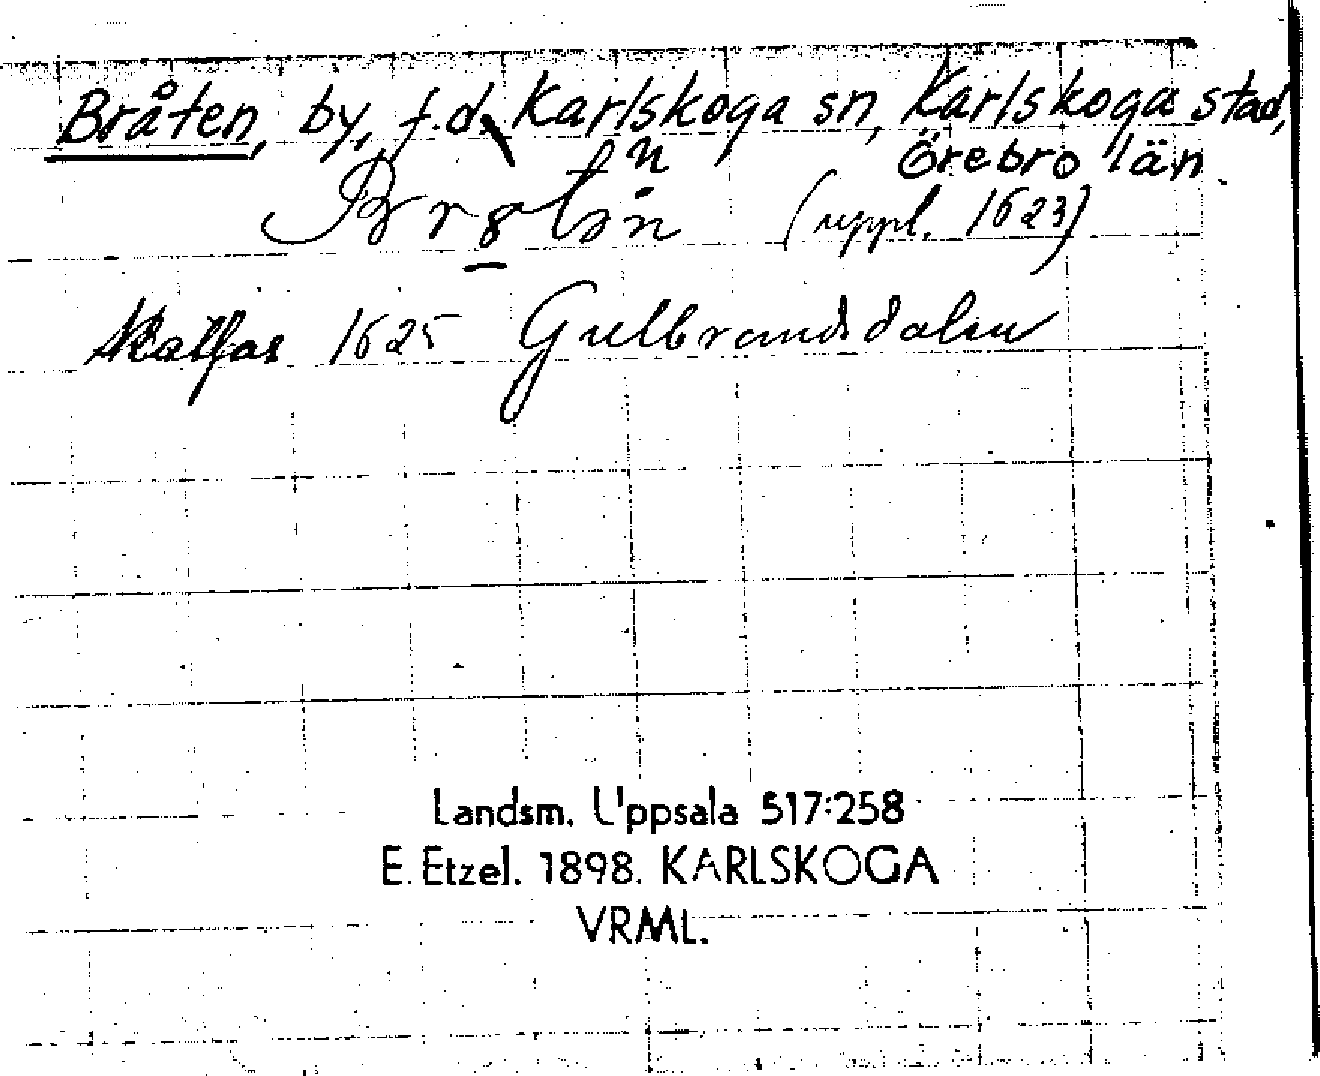 Bråten, by, f.d. Karlskoga sn, Karlskoga stad,
Örebro län
(uppl. 1623)
Skattas 1625 Gulbrandsdalen
Landsm. Uppsala 517:258
E. Etzel. 1898. KARLSKOGA
VRML.